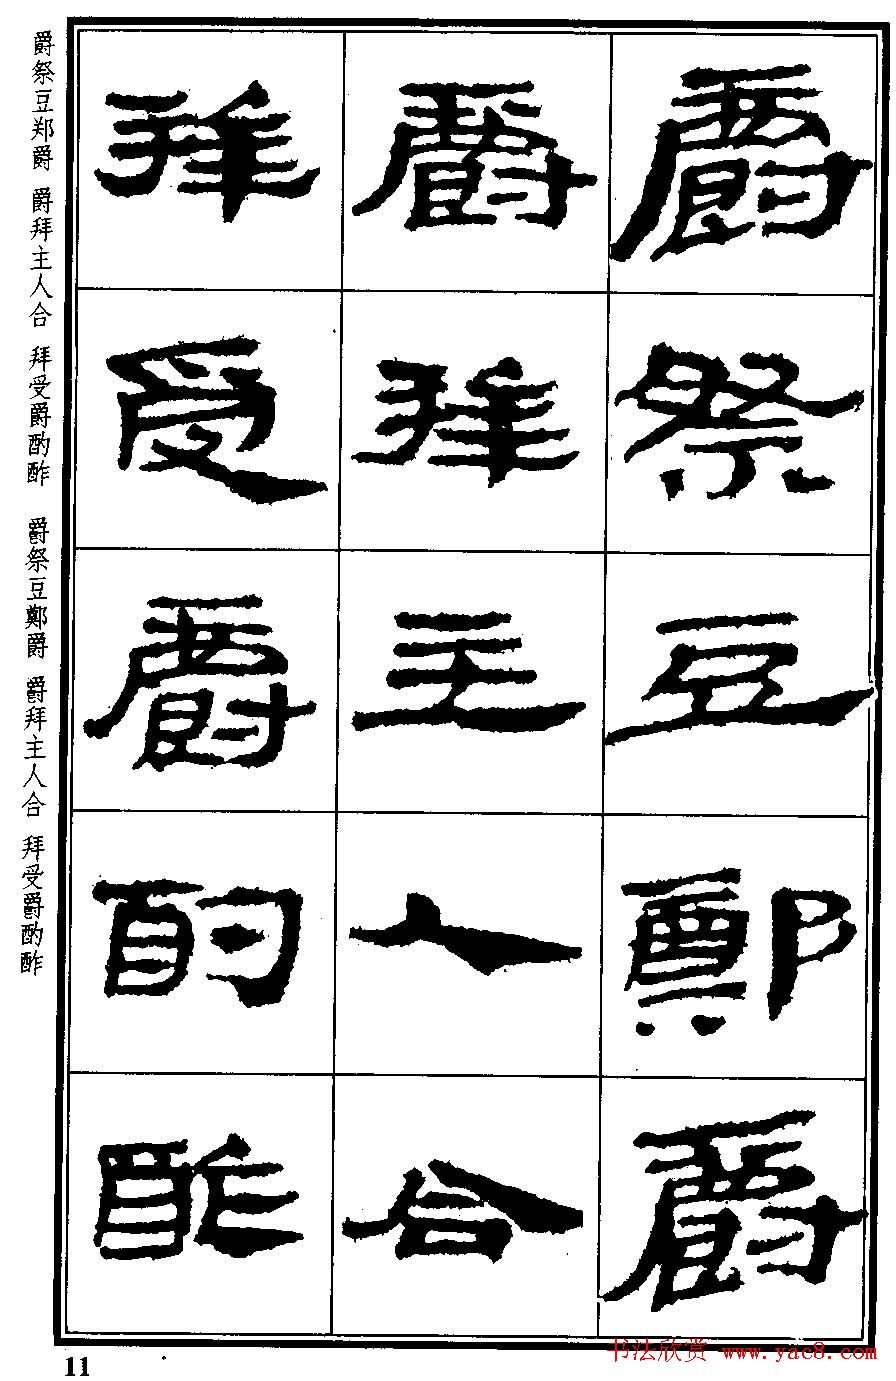 爵祭豆鄭爵
爵拜主人合
拜受爵酌酢
爵祭豆郑爵 爵拜主人合 拜受爵酌酢 爵祭豆鄭爵 爵拜主人合 拜受爵酌酢
11
书法欣赏 www.yac8.com